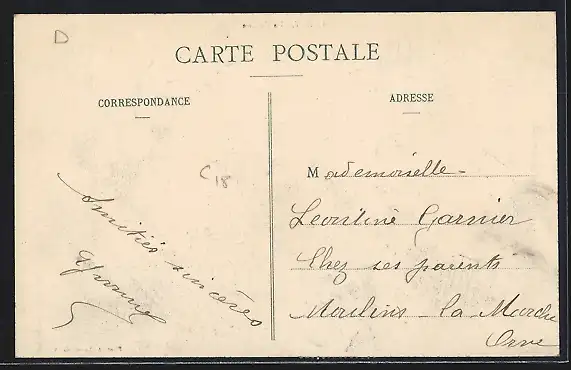 D
CARTE POSTALE
CORRESPONDANCE
ADRESSE
C18
Mademoiselle
Leontine Garnier
Chez ses parents
Moulins la Marche
Orne
Amitiés sincères